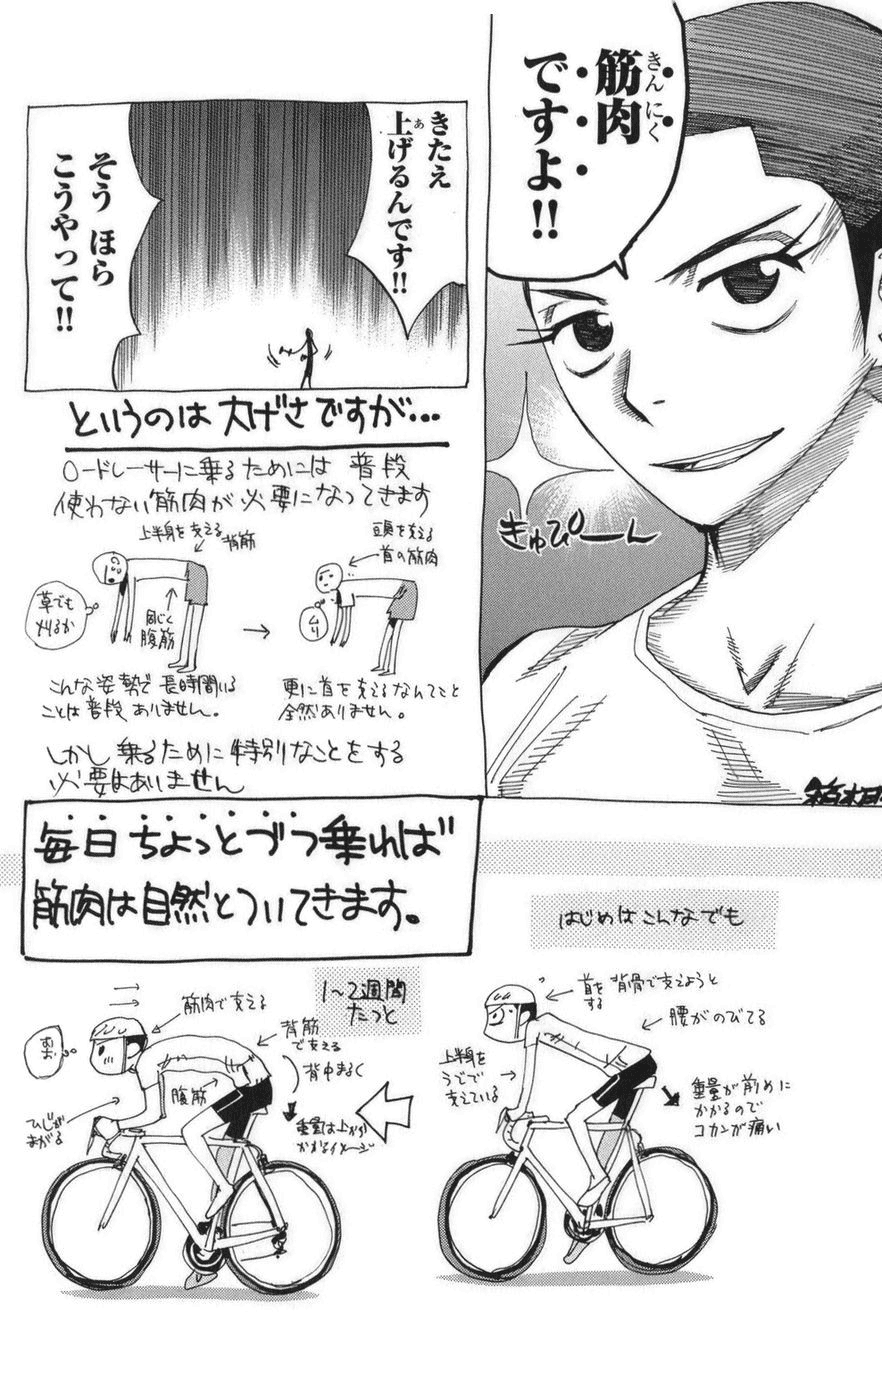 筋肉
きんにく
ですよ!!
きたえ
上げるんです!!
あ
そう ほら
こうやって!!
きゅぴーん
というのは大げさですが…
ロードレーサーに乗るためには 普段
使わない筋肉が必要になってきます
上半身を支える
背筋
草でも
刈るか
同じく
腹筋
→
頭を支える
首の筋肉
ムリ
こんな姿勢で長時間いる
ことは普段ありません。
更に首を支えるなんてこと
全然ありません。
しかし乗るために特別なことをする
必要はありません
毎日ちょっとづつ乗れば
筋肉は自然とついてきます。
はじめはこんなでも
首を 背骨で支えようと
する
腰がのびてる
上半身を
うでで
支えている
重量が前めに
かかるので
コカンが痛い
1〜2週間
たつと
筋肉で支える
背筋
で支える
背中まるく
腹筋
ひじが
まがる
重量は上から
かかるイメージ